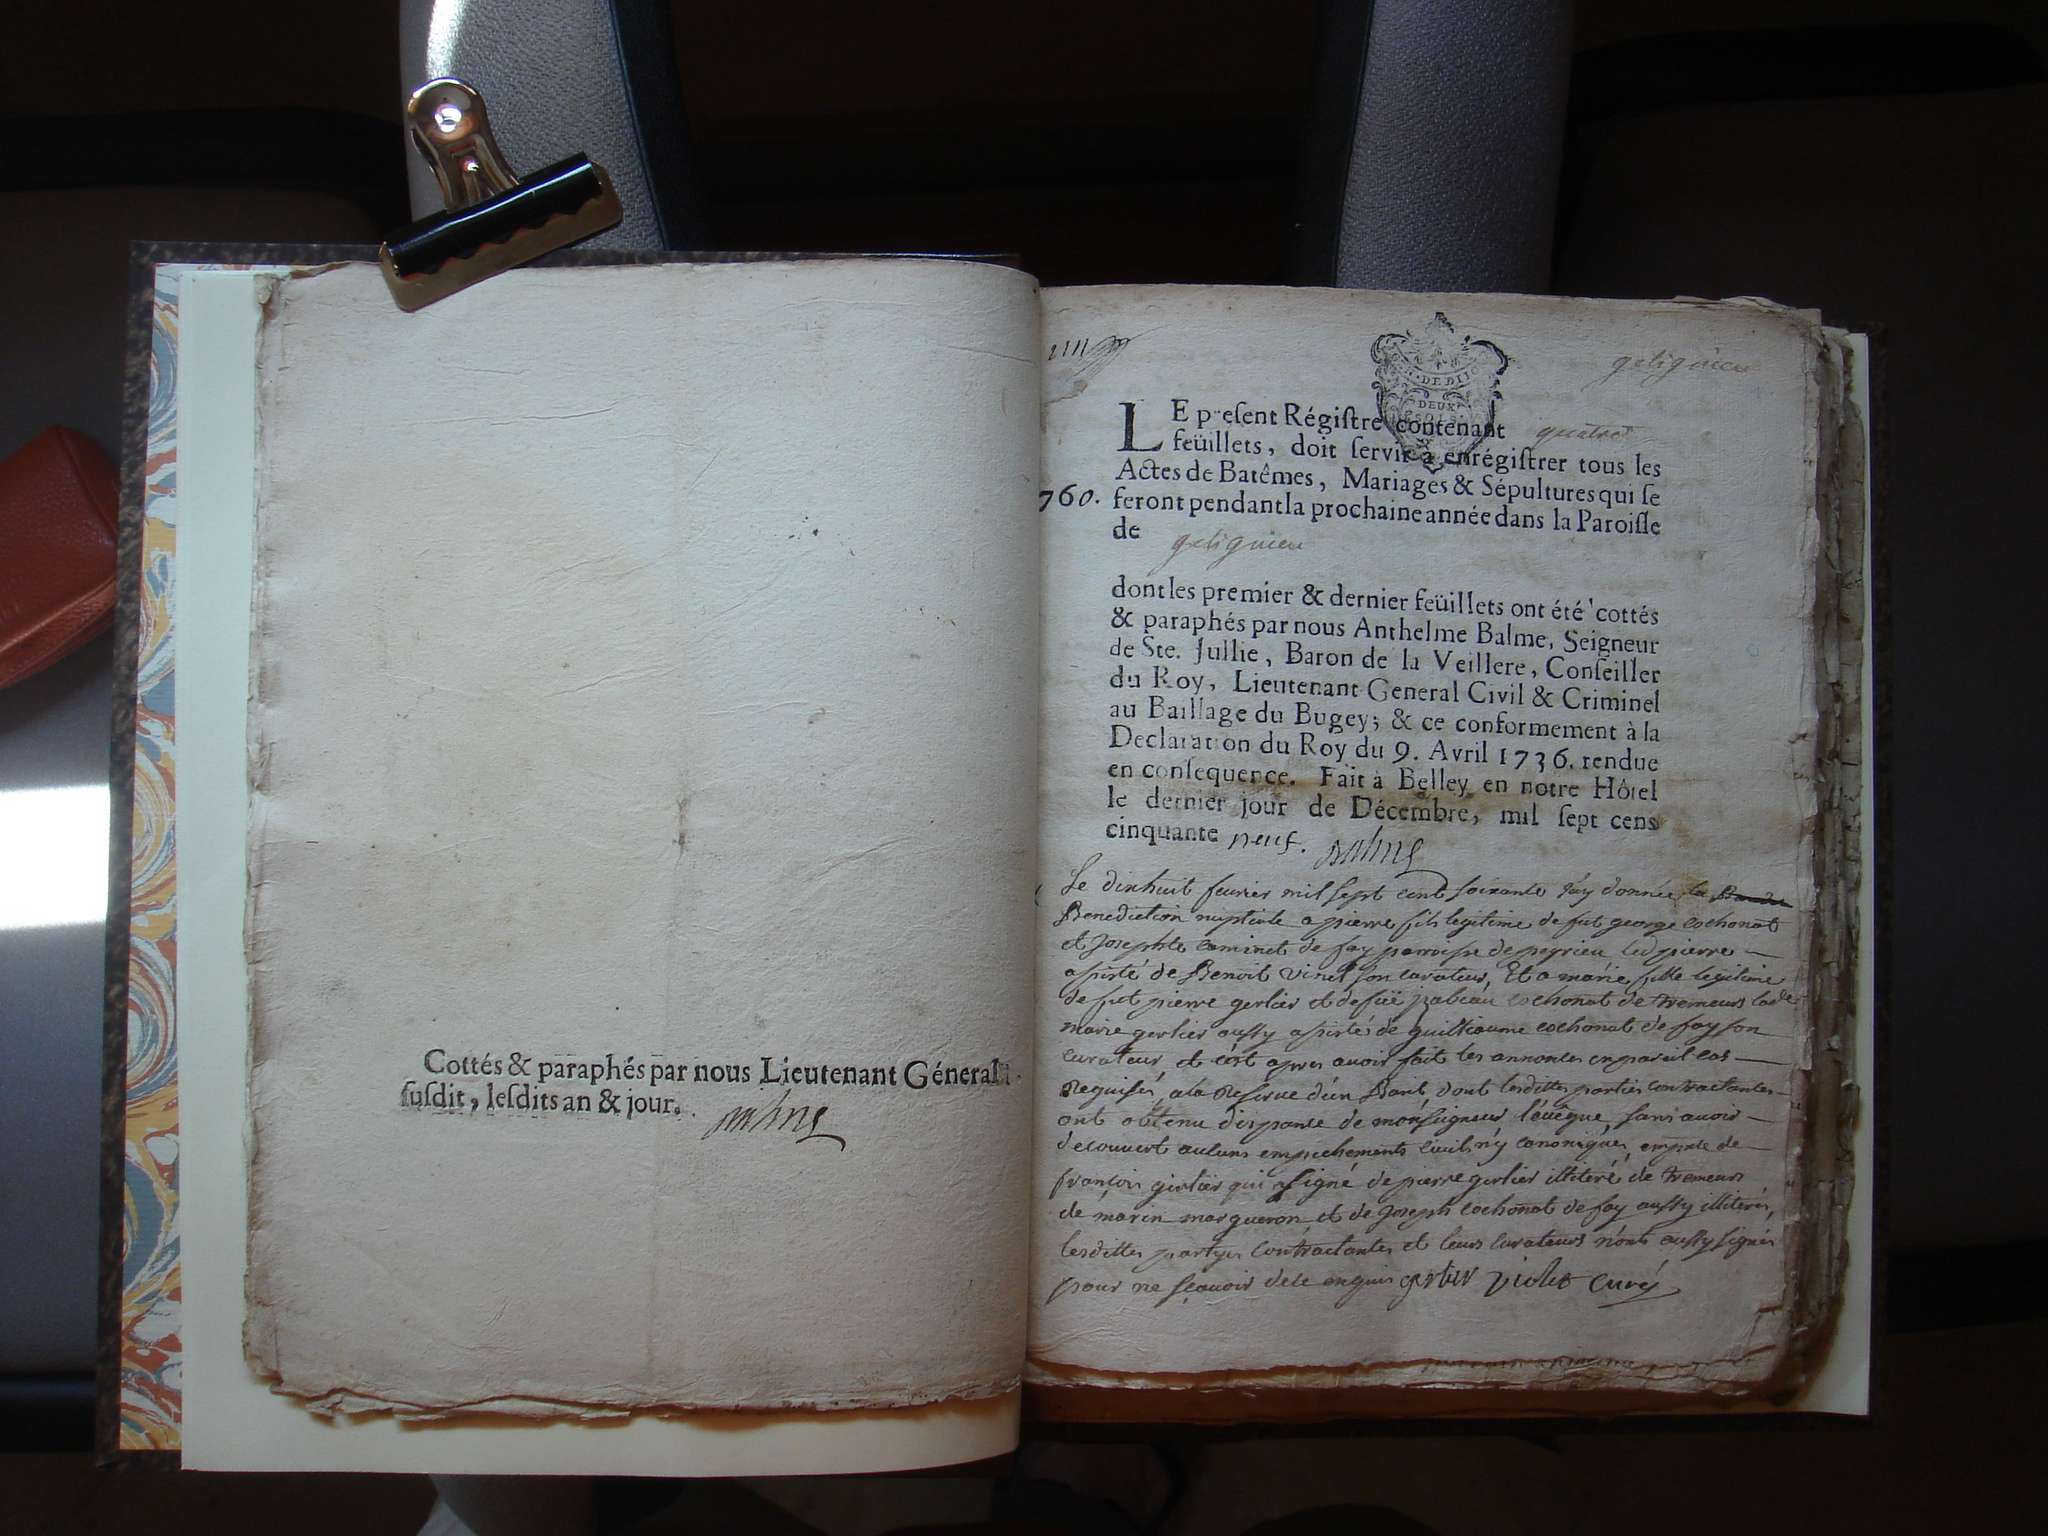 Cottés & paraphés par nous Lieutenant Général
ſuſdit, leſdits an & jour.
gelignieu
DE DIJO
DEUX
SOLS
LE preſent Régiſtre contenant quatre
feüillets, doit ſervir à enrégiſtrer tous les
Actes de Batêmes, Mariages & Sépultures qui ſe
760. feront pendant la prochaine année dans la Paroiſſe
de gelignieu
dont les premier & dernier feüillets ont été cottés
& paraphés par nous Anthelme Balme, Seigneur
de Ste. Jullie, Baron de la Veillere, Conſeiller
du Roy, Lieutenant General Civil & Criminel
au Baillage du Bugey; & ce conformement à la
Declaration du Roy du 9. Avril 1736. rendue
en conſequence. Fait à Belley en notre Hôtel
le dernier jour de Décembre, mil ſept cens
cinquante neuf. Balme
Le dixhuit fevrier mil sept cent soixante j'ay donnée la
Benediction nuptiale a pierre fils legitime de fut george cochonat
et Josephte caminet de fay parroisse de peyrieu led pierre
asisté de Benoit vinet son curateur, Et a marie fille legitime
de fut pierre gerlier et de fuë jzabeau cochonat de tremeurs lad
marie gerlier aussy asisté de guilliaume cochonat de fay son
curateur, et c'est apres avoir fait les annonces en pareil cas
Requises, a la Reserve d'un Banc dont lesdittes parties contractantes
ont obtenu dispance de monseigneur l'évêque, sans avoir
découvert aucuns empechements civils n'y canoniques, en pnce de
françois gerlier qui a signé de pierre gerlier illiteré de tremeurs
de marin margueron et de Joseph cochonat de fay aussy illiterés,
lesdittes partyes contractantes et leurs curateurs n'ont aussy signés
pour ne sçavoir de ce enquis gerlier violet curé